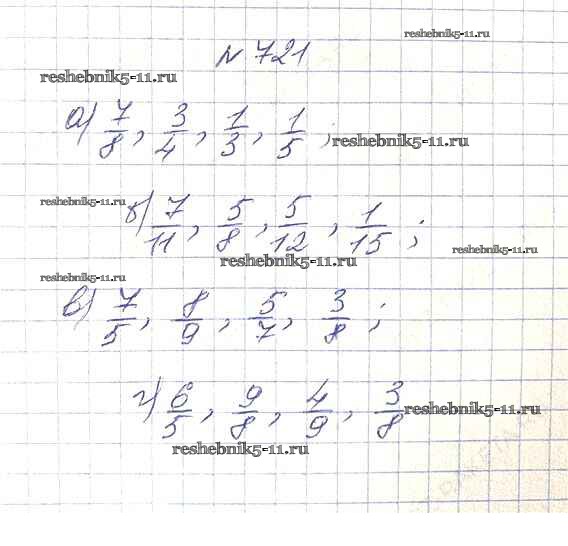 reshebnik5-11.ru
№ 721
reshebnik5-11.ru
а) 7/8, 3/4, 1/3, 1/5; reshebnik5-11.ru
reshebnik5-11.ru
б) 7/11, 5/8, 5/12, 1/15;
reshebnik5-11.ru
reshebnik5-11.ru
reshebnik5-11.ru
в) 7/5, 8/9, 5/7, 3/8;
г) 6/5, 9/8, 4/9, 3/8 reshebnik5-11.ru
reshebnik5-11.ru